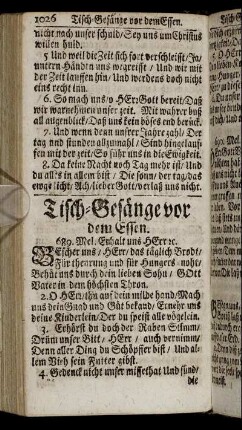 1026 Tisch-Gesänge vor dem Essen.
nicht nach unser schuld/ Sey uns um Christus
willen huld.
5 Und weil die Zeit sich fort verschleißt/ Ja/
untern Händen uns wegreißt / Und wir mit
der Zeit lauffen hin/ Und werdens doch nicht
eins recht inn.
6. So mach uns/o HErr Gott bereit/ Daß
wir warnehmen unser zeit. Mit wahrer buß
all augenblick/ Daß uns kein böses end berück.
7. Und wenn denn unsrer Jahre zahl/ Der
tag und stunden allzumahl / Sind hingelauf-
fen mit der zeit/ So führ uns in die Ewigkeit.
8. Da kein Nacht noch Tag mehr ist/ Und
du alls in allem bist / Die sonn/ der tag/ das
ewge licht: Ach/ lieber Gott/ verlaß uns nicht.
Tisch-Gesänge vor
dem Essen.
689. Mel. Erhalt uns HErr ꝛc.
BEscher uns/ HErr/ das täglich Brodt/
Für theurung und für Hungers-noht/
Behüt uns durch dein lieben Sohn/ GOtt
Vater in dem höchsten Thron.
2. O HErr/ thu auf dein milde hand/ Mach
uns dein Gnad und Güt bekand/ Ernehr uns
deine Kinderlein/ Der du speist alle vögelein.
3. Erhörst du doch der Raben Stimm/
Drüm unser Bitt/ HErr / auch vernimm/
Denn aller Ding du Schöpffer bist/ Und al-
lem Vieh sein Futter gibst.
4. Gedenck nicht unser missethat Und sünd/
die